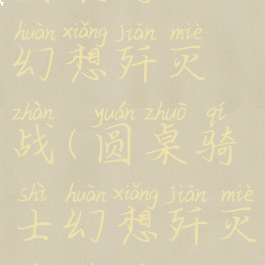 huàn xiǎng jiān miè
幻想歼灭
zhàn yuán zhuō qí
战(圆桌骑
shì huàn xiǎng jiān miè
士幻想歼灭